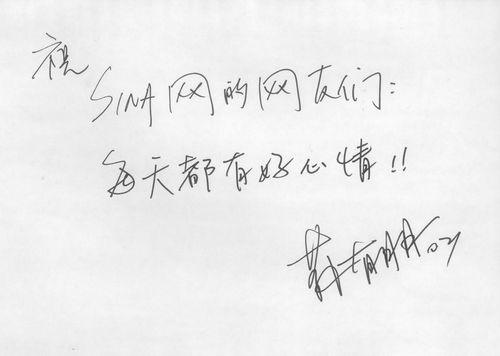 祝
SINA网的网友们:
每天都有好心情!!